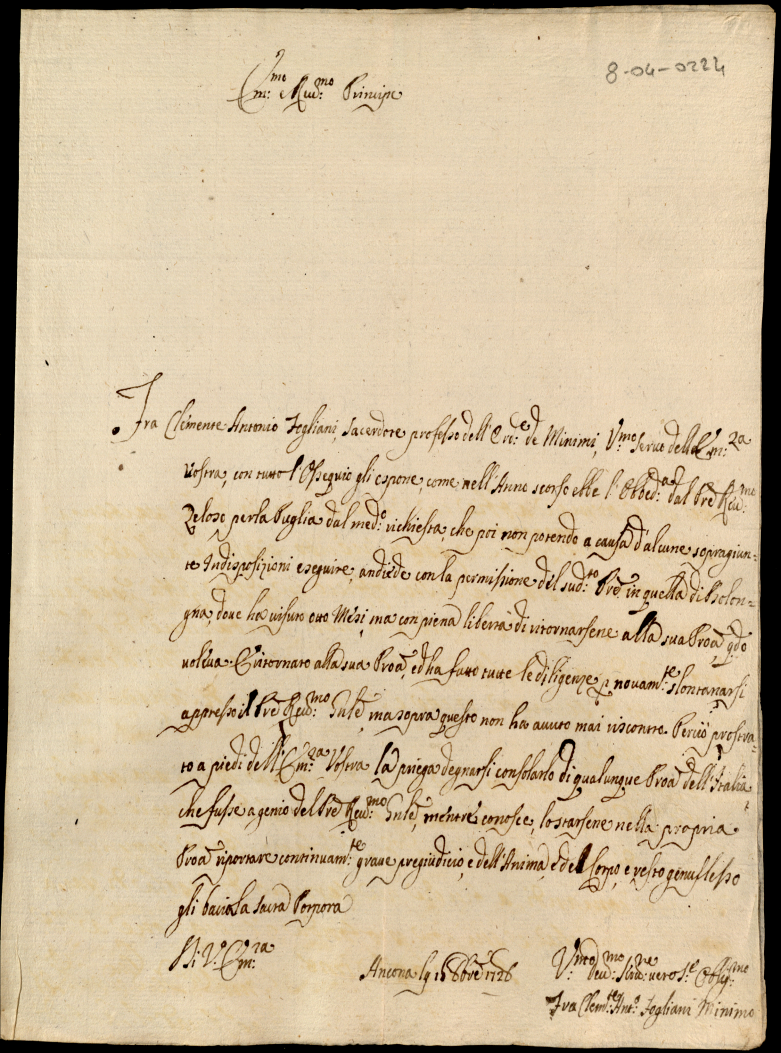 8-04-0224
Em:mo e Reud:mo Principe
Fra Clemente Antonio Fogliani, Sacerdote professo dell'Ord:e de Minimi, V:mo Seruo dell'Em:za
Vostra, con tutto l'Ossequio gli espone, come nell'Anno scorso ebbe l'Obbed:a dal Pre Reu:mo
Zeloso per la Puglia dal med:o richiesta, che poi non potendo a causa d'alcune sopragiun-
te Indisposizioni eseguire, andiede con la permissione del sud:to Pre in quella di Bolon-
gna, doue ha uisuto otto Mesi, ma con piena libertà di ritornarsene alla sua Proa qdo
uoleua. E ritornato alla sua Proa, ed ha fatto tutte le diligenze p nouam:te slontanarsi
appresso il Pre Reu:mo Gnle, ma sopra questo non ha auuto mai riscontro. Perciò prostra-
to a piedi dell'Em:za Vostra la priega degnarsi consolarlo di qualunque Proa dell'Italia
che fusse a genio del Pre Reu:mo Gnle, mentre conosce, lo starsene nella propria
Proa riportare continuam:te graue pregiudicio, e dell'Anima, e del Corpo, e resto genuflesso
gli bacio la sacra Porpora
Di V:a Em:za
Ancona li 15 8bre 1726
V:mo Deu:mo Seru:re uero Obblig:mo
Fra Clem:te Ant:o Fogliani Minimo